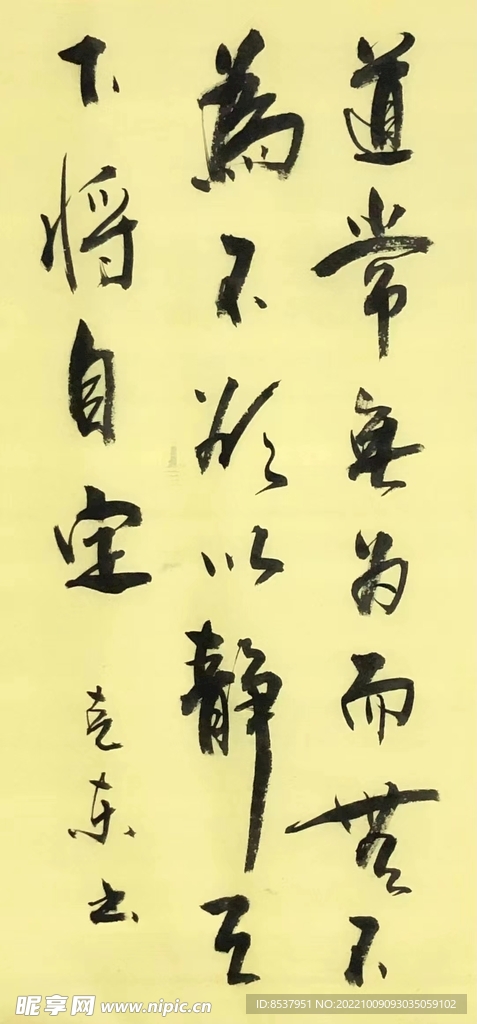 道常無为而無不
為不欲以靜天
下将自定
克东书
昵享网 www.nipic.cn
ID:8537951 NO:20221009093035059102